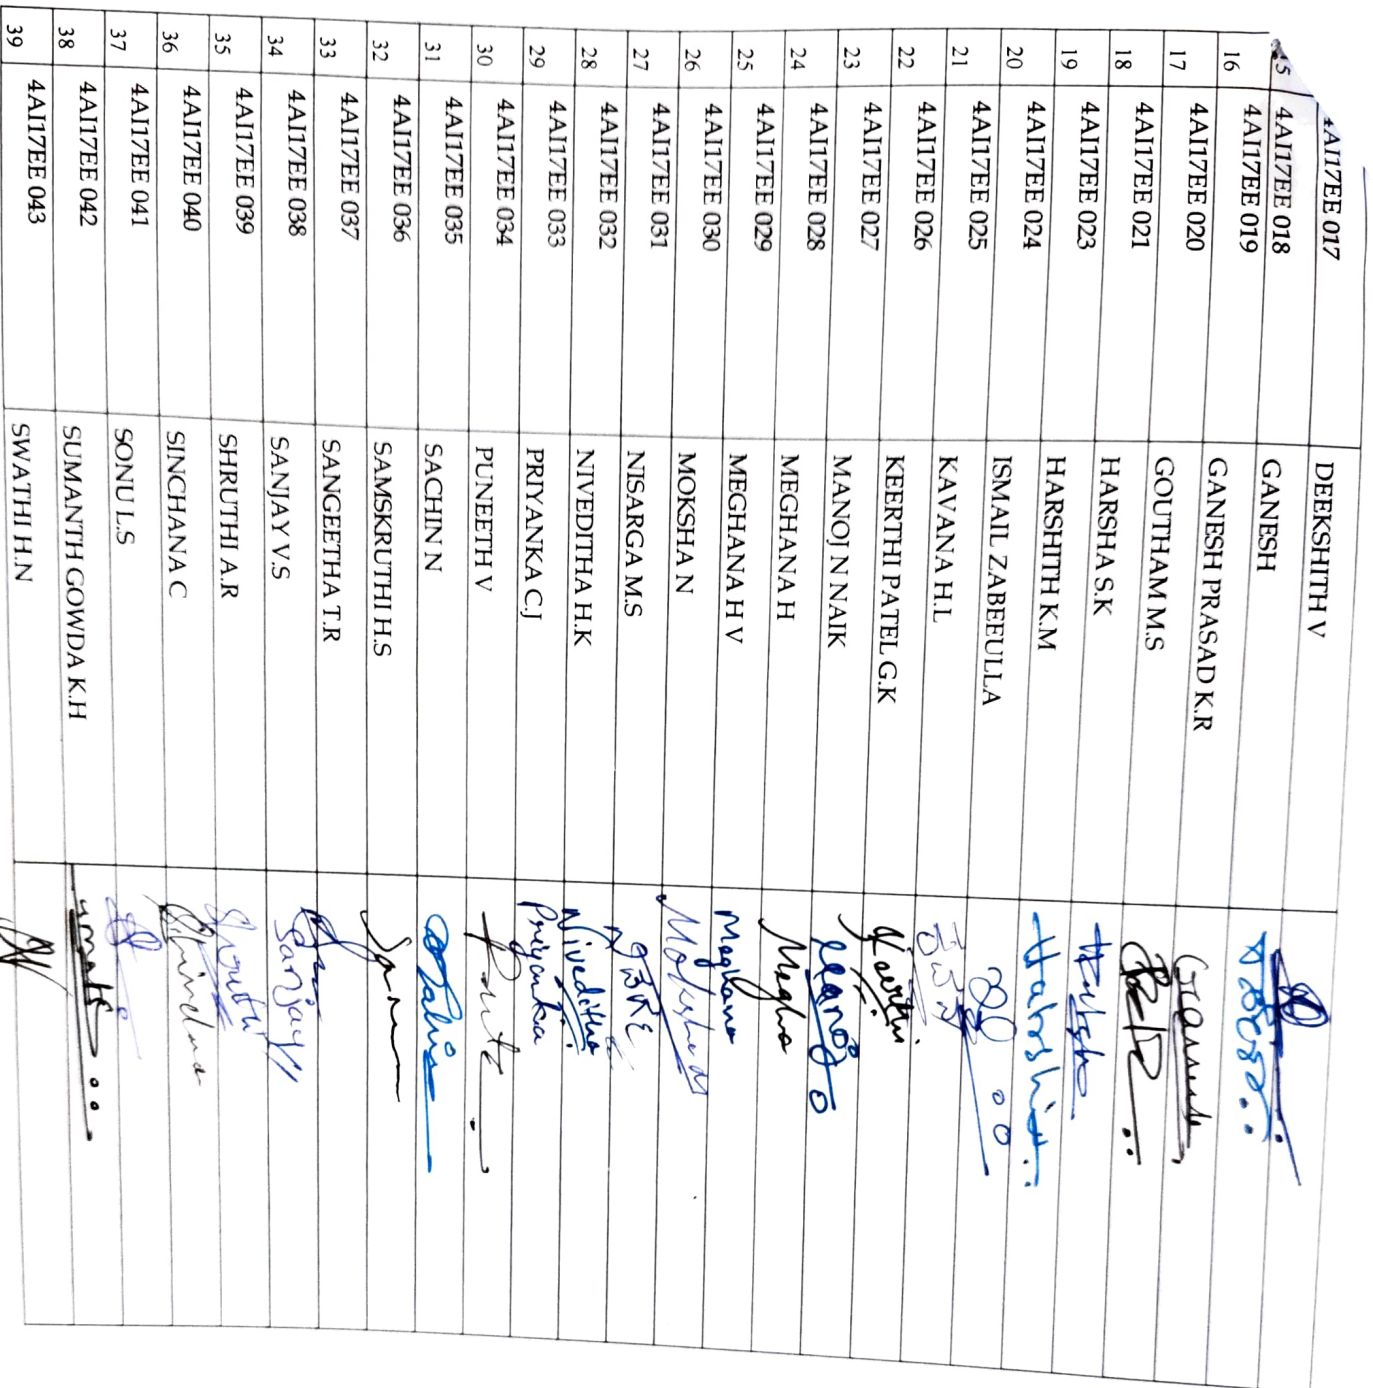 4AI17EE 017 DEEKSHITH V
15 4AI17EE 018 GANESH
16 4AI17EE 019 GANESH PRASAD K.R
17 4AI17EE 020 GOUTHAM M.S
18 4AI17EE 021 HARSHA S.K
19 4AI17EE 023 HARSHITH K.M
20 4AI17EE 024 ISMAIL ZABEEULLA
21 4AI17EE 025 KAVANA H.L
22 4AI17EE 026 KEERTHI PATEL G.K
23 4AI17EE 027 MANOJ N NAIK
24 4AI17EE 028 MEGHANA H Megha
25 4AI17EE 029 MEGHANA H V Meghana
26 4AI17EE 030 MOKSHA N
27 4AI17EE 031 NISARGA M.S
28 4AI17EE 032 NIVEDITHA H.K Niveditha
29 4AI17EE 033 PRIYANKA C.J Priyanka
30 4AI17EE 034 PUNEETH V
31 4AI17EE 035 SACHIN N
32 4AI17EE 036 SAMSKRUTHI H.S
33 4AI17EE 037 SANGEETHA T.R
34 4AI17EE 038 SANJAY V.S Sanjay
35 4AI17EE 039 SHRUTHI A.R
36 4AI17EE 040 SINCHANA C
37 4AI17EE 041 SONU L.S
38 4AI17EE 042 SUMANTH GOWDA K.H
39 4AI17EE 043 SWATHI H.N